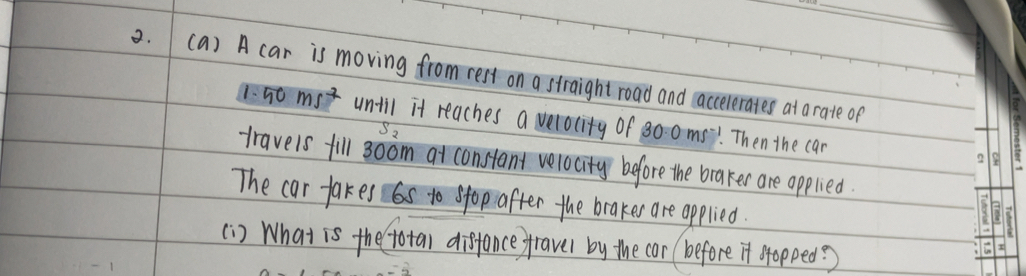 2. (a) A car is moving from rest on a straight road and accelerates at a rate of
1.50 ms⁻² until it reaches a velocity of 30.0 ms⁻¹. Then the car
S₂
travels till 300m at constant velocity before the brakes are applied.
The car takes 6s to stop after the brakes are applied.
(i) What is the (total distance) travel by the car (before it stopped?)
for Semester 1
Tutorial
CH
C1
Tutorial 1
1.5